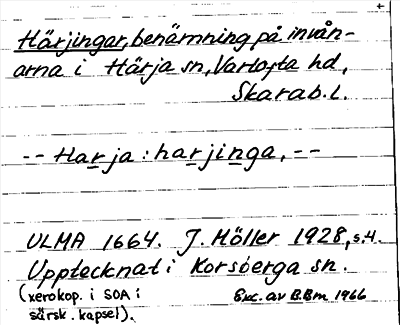 Härjingar, benämning på invån-
arna i Härja sn, Vartofta hd,
Skarab. l.
-- Harja : harjinga, --
ULMA 1664. J. Höller 1928, s. 4.
Upptecknat i Korsberga sn.
(xerokop. i SOA i Exc. av B.Bm 1966
särsk. kapsel).